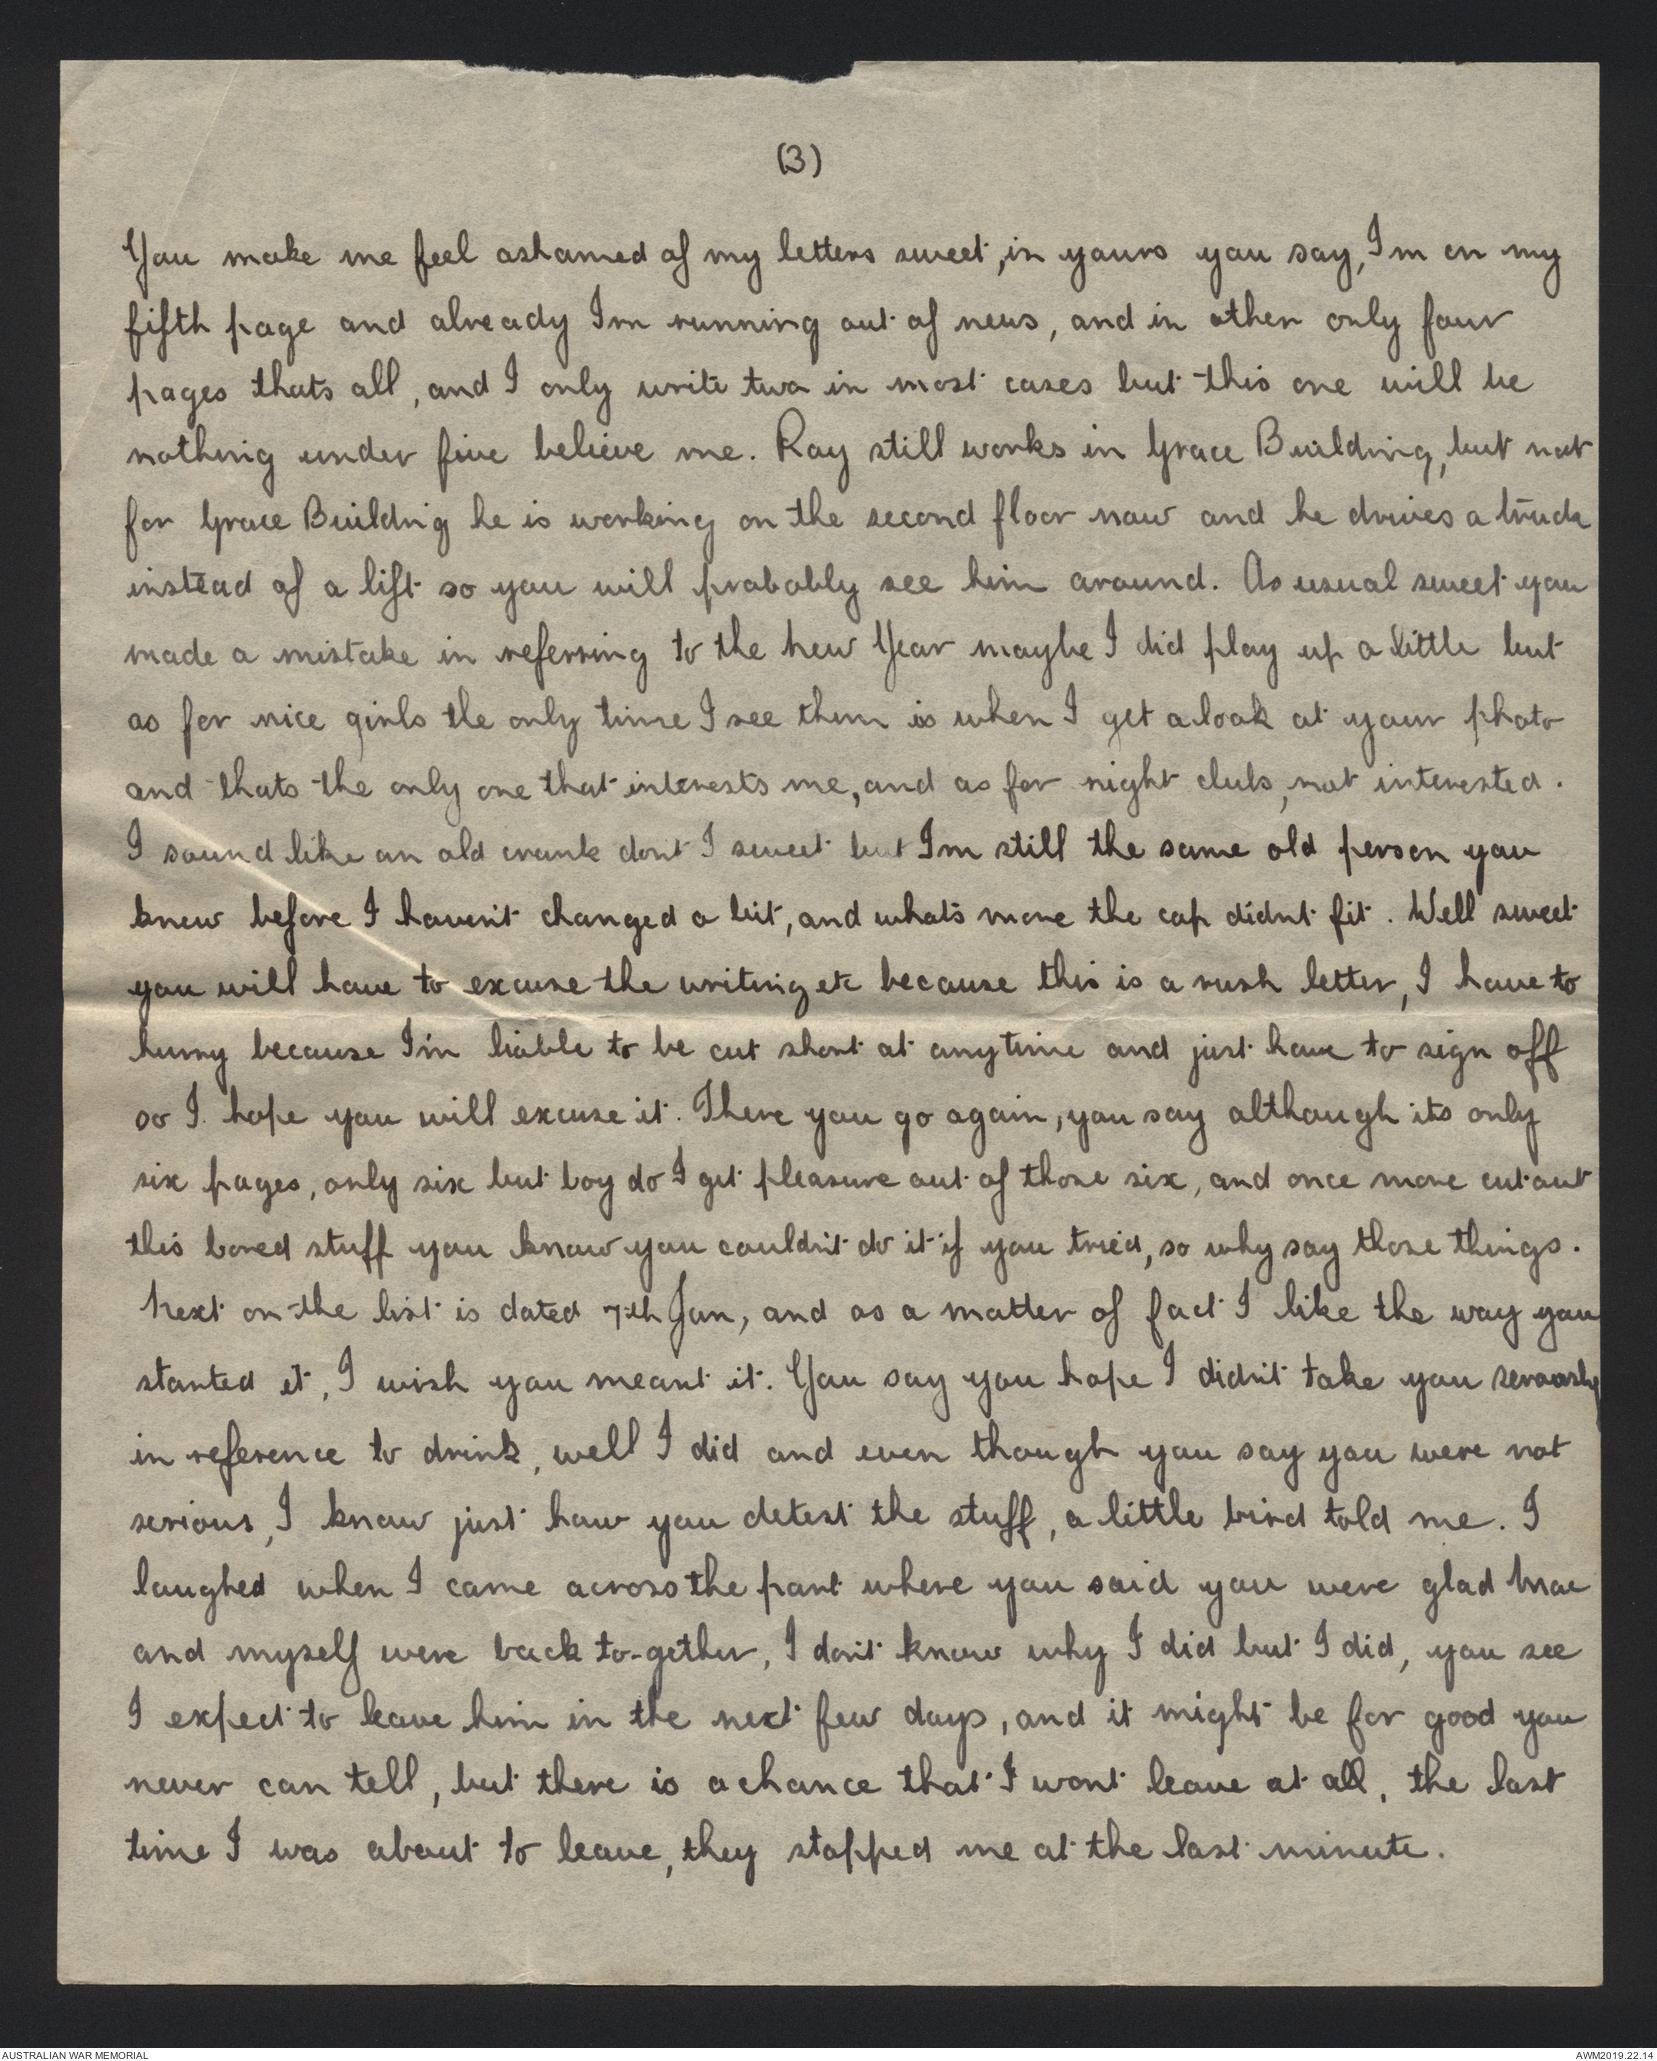 (3)
You make me feel ashamed of my letters sweet, in yours you say, Im on my
fifth page and already Im running out of news, and in other only four
pages thats all, and I only write two in most cases but this one will be
nothing under five believe me. Ray still works in Grace Building, but not
for Grace Buildnig he is working on the second floor now and he drives a truck
instead of a lift so you will probably see him around. As usual sweet you
made a mistake in referring to the new Year maybe I did play up a little but
as for nice girls the only time I see them is when I get a look at your photo
and thats the only one that interests me, and as for night clubs, not interested.
I sound like an old crank dont I sweet but Im still the same old person you
knew before I haven't changed a bit, and what's more the cap didnt fit. Well sweet
you will have to excuse the writing etc because this is a rush letter, I have to
hurry because I'm liable to be cut short at anytime and just have to sign off
so I hope you will excuse it. There you go again, you say although its only
six pages, only six but boy do I get pleasure out of those six, and once more cut out
this bored stuff you know you couldn't do it if you tried, so why say those things.
Next on the list is dated 7th Jan, and as a matter of fact I like the way you
started it, I wish you meant it. You say you hope I didn't take you seriously
in reference to drink, well I did and even though you say you were not
serious, I know just how you detest the stuff, a little bird told me. I
laughed when I came across the part where you said you were glad Mac
and myself were back to-gether, I don't know why I did but I did, you see
I expect to leave him in the next few days, and it might be for good you
never can tell, but there is a chance that I wont leave at all, the last
time I was about to leave, they stopped me at the last minute.
AUSTRALIAN WAR MEMORIAL
AWM2019.22.14